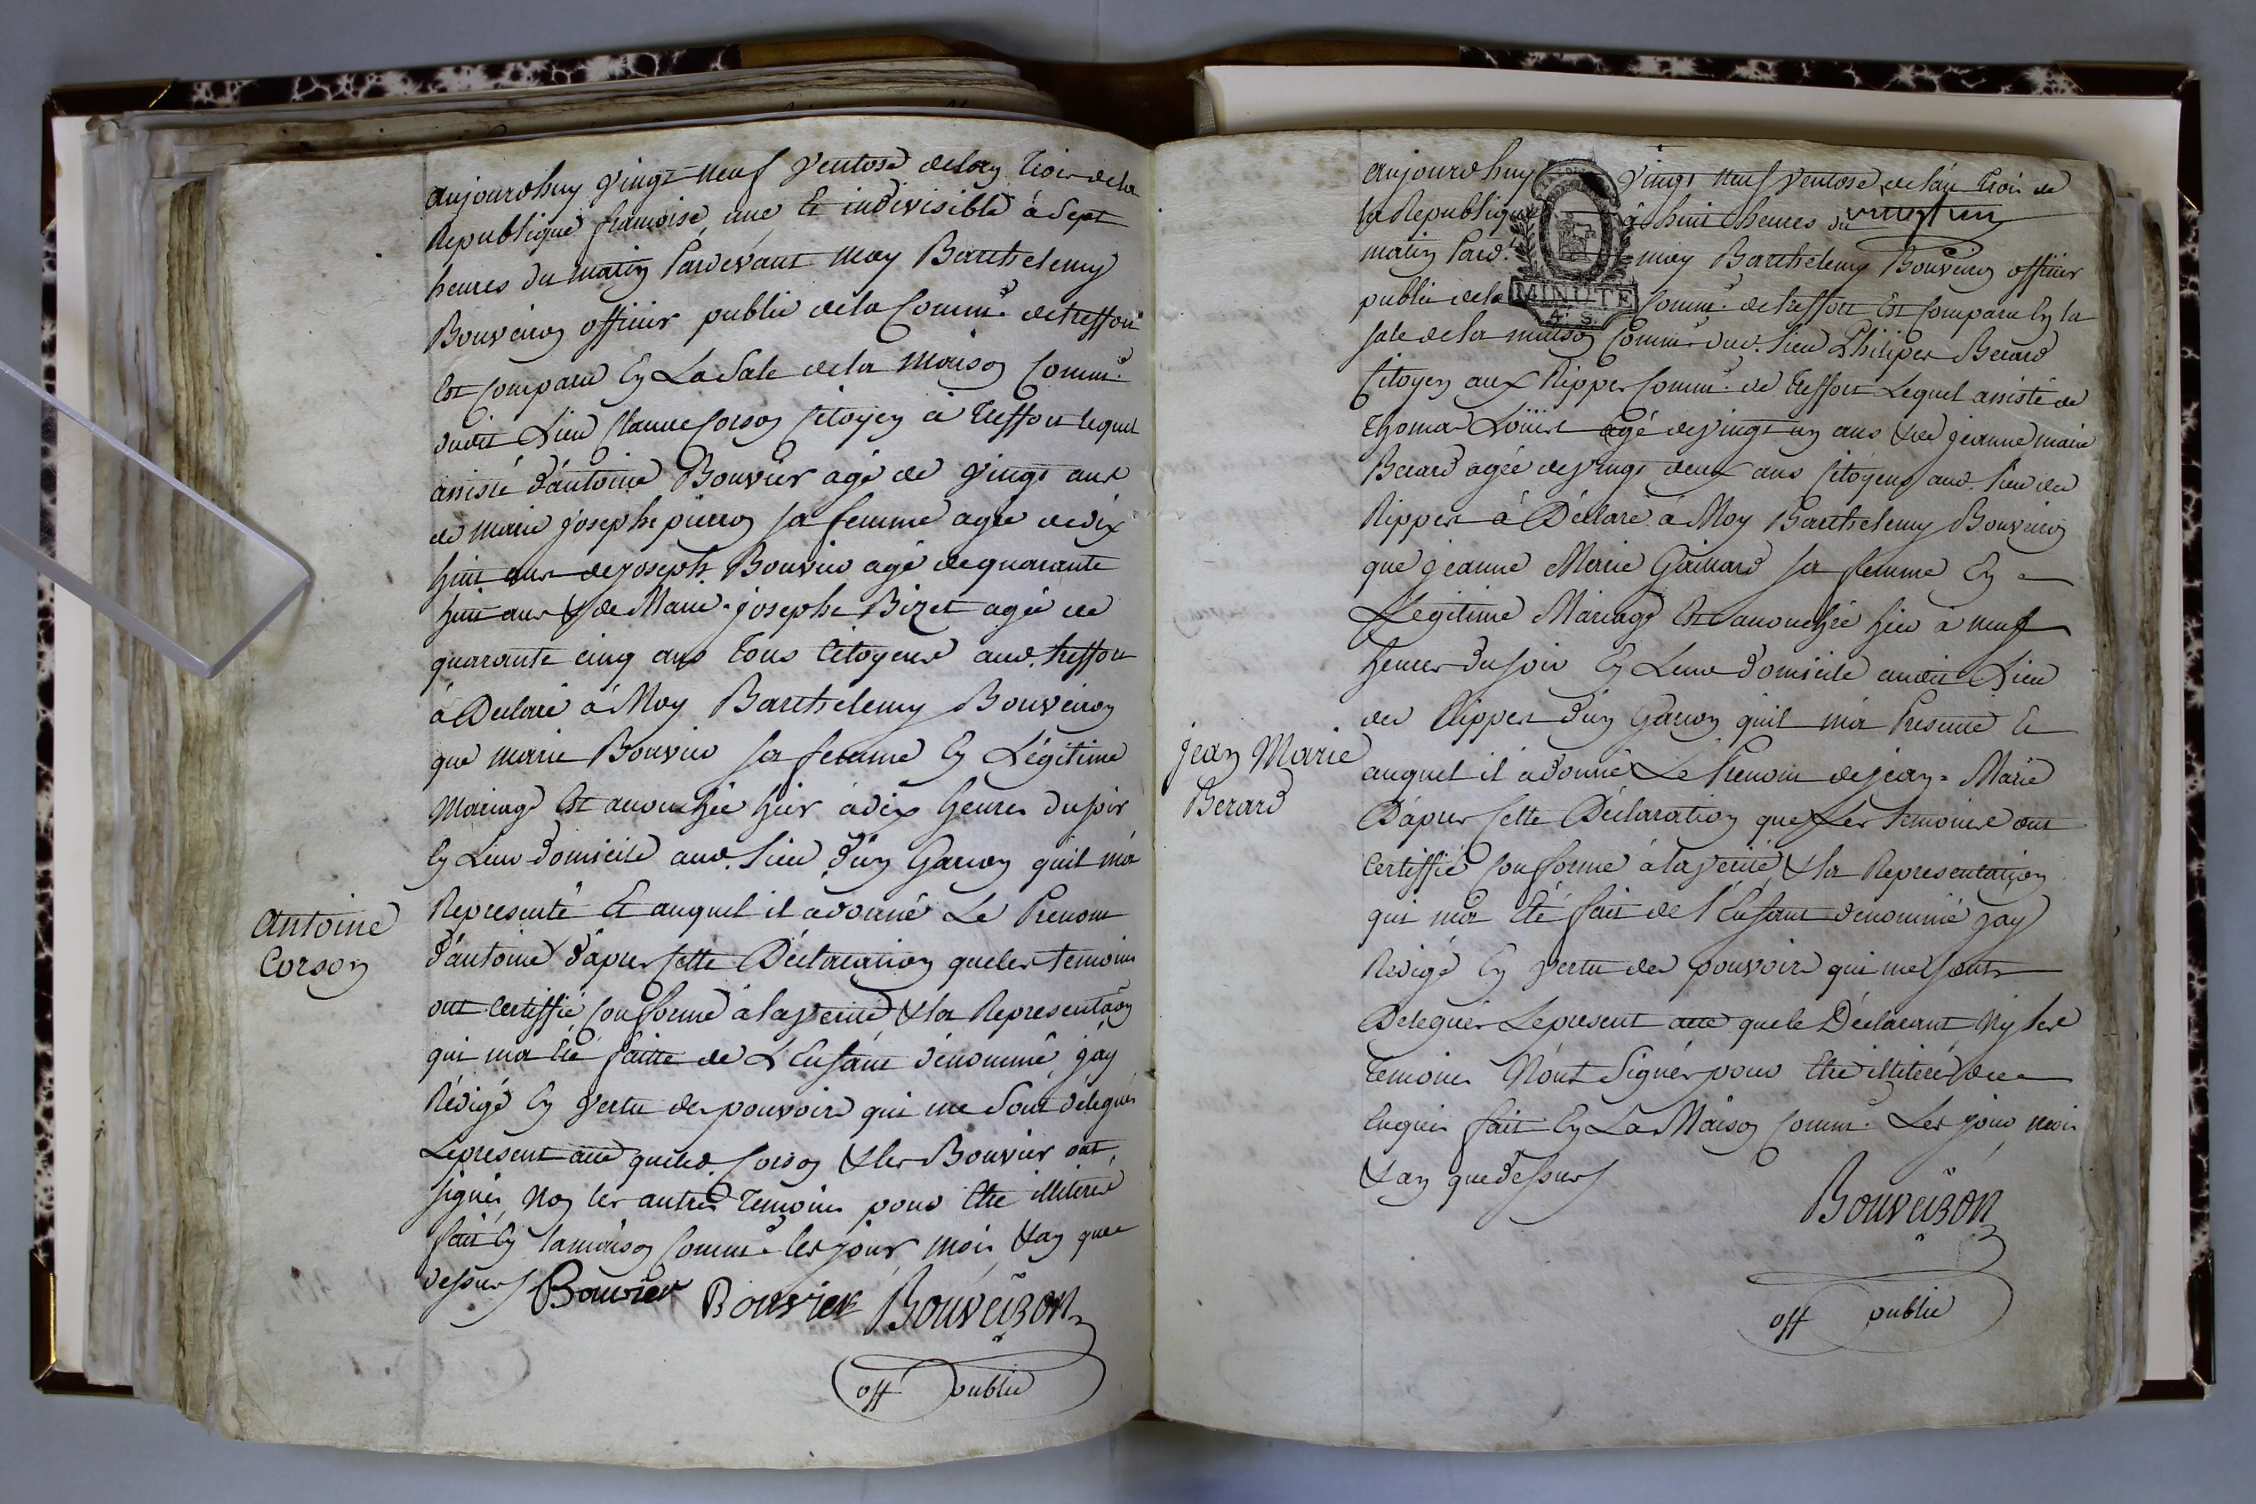 aujourdhuy Vingt neuf Ventose delan trois dela
Republique francoise une Et indivisible à Sept
heures du matin Pardevant moy Barthelemy
Bouveiron officier public dela Comm.e detreffort
Est Comparu En La Sale dela Maison Comm.e
dudit Lieu Claude Corson Citoyen à Treffort lequel
assisté d'antoine Bouvier agé de Vingt ans
de marie josephe pierron sa femme agée dedix
huit ans dejoseph Bouvier agé dequarante
huit ans & de Marie-josephe Bizet agée de
quarante cinq ans tous Citoyens aud. treffort
à Declaré à Moy Barthelemy Bouveiron
que marie Bouvier sa femme En Légitime
Mariage Est accouchée hier àdix heures dusoir
En Leur domicile aud. Lieu d'un Garcon quil m'a
Representé Et auquel il adonné Le Prenom
d'antoine d'apres Cette Déclaration queles temoins
ont Certiffié Conforme àlaverité & la Representaon
qui ma Eté faitte de L'Enfant dénommé, jay
Rédigé En Vertu des pouvoirs qui me Sont délégués
Lepresent acte queled. Corson & les Bouvier ont
signés, Non les autres Temoins pour Etre illiterés
fait En lamaison Comm.e les jour, mois & an que
dessus
Bouvier Bouvier Bouveiron
off public
antoine
Corson
aujourdhuy Vingt neuf Ventose delan trois de
la Republique à huit heures du
matin Pard.t moy Barthelemy Bouveiron officier
public dela Comm.e detreffort Est Comparu En la
sale dela maison Comm.e dud. lieu Philiper Berard
Citoyen aux Rippes Comm.e de Treffort Lequel assisté de
Thomas Loüis agé devingt un ans & de jeanne marie
Berard agée devingt deux ans Citoyens aud. lieu des
Rippes à Déclaré à Moy Barthelemy Bouveiron
que jeanne Marie Gaillard sa femme En
Légitime Mariage Est accouchée hier à neuf
heures dusoir En Leur domicile audit Lieu
des Rippes d'un Garcon quil m'a Presenté Et
auquel il adonné Le Prenom dejean-Marie
D'apres Cette Déclaration que Les temoins ont
Certiffié Conforme àlaverité & la Representation
qui m'a Eté fait de l'Enfant dénommé jay
Rédigé En Vertu des pouvoirs qui me sont
Delegués Lepresent acte quele Déclarant Ny les
Temoins N'ont Signés pour Etre illiterés de ce
Enquis fait En La Maison Comm.e Les jour, mois
& an quedessus
Bouveiron
off public
jean Marie
Berard
MINUTE
4. S.